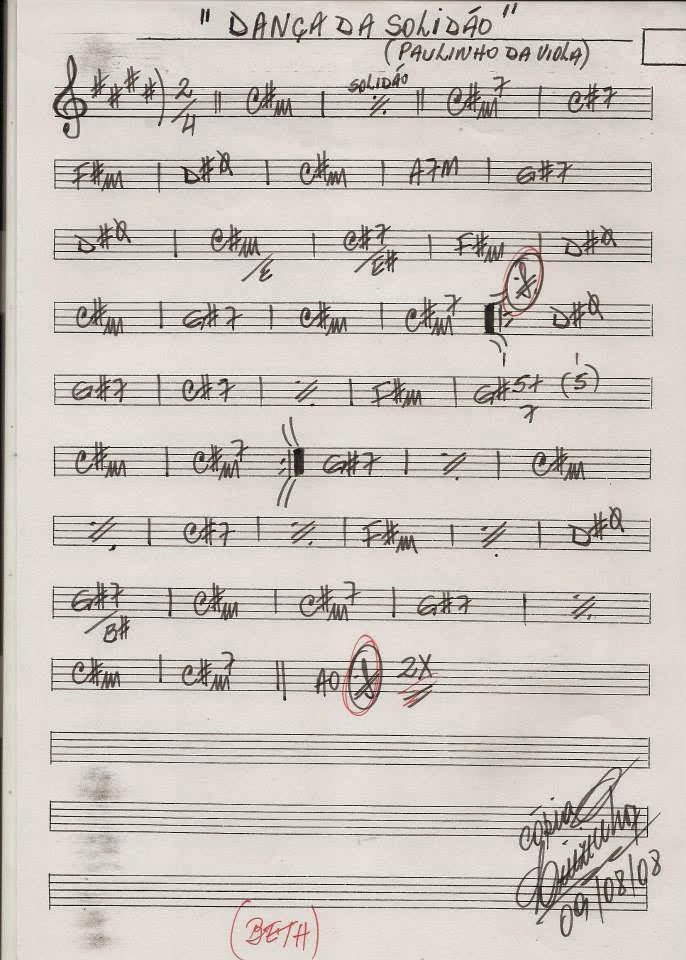 " DANÇA DA SOLIDÃO "
(PAULINHO DA VIOLA)
2/4 || C#m | SOLIDÃO ٪ || C#m7 | C#7
F#m | D#Ø | C#m | A7M | G#7
D#Ø | C#m/E | C#7/E# | F#m | D#Ø
C#m | G#7 | C#m | C#m7 D#Ø
G#7 | C#7 | ٪ | F#m | G#5+ 7 (5)
C#m | C#m7 :|| G#7 | ٪ | C#m
٪ | C#7 | ٪ | F#m | ٪ | D#Ø
G#7/B# | C#m | C#m7 | G#7 | ٪
C#m | C#m7 || AO 2X
cópia
09/08/08
(BETH)